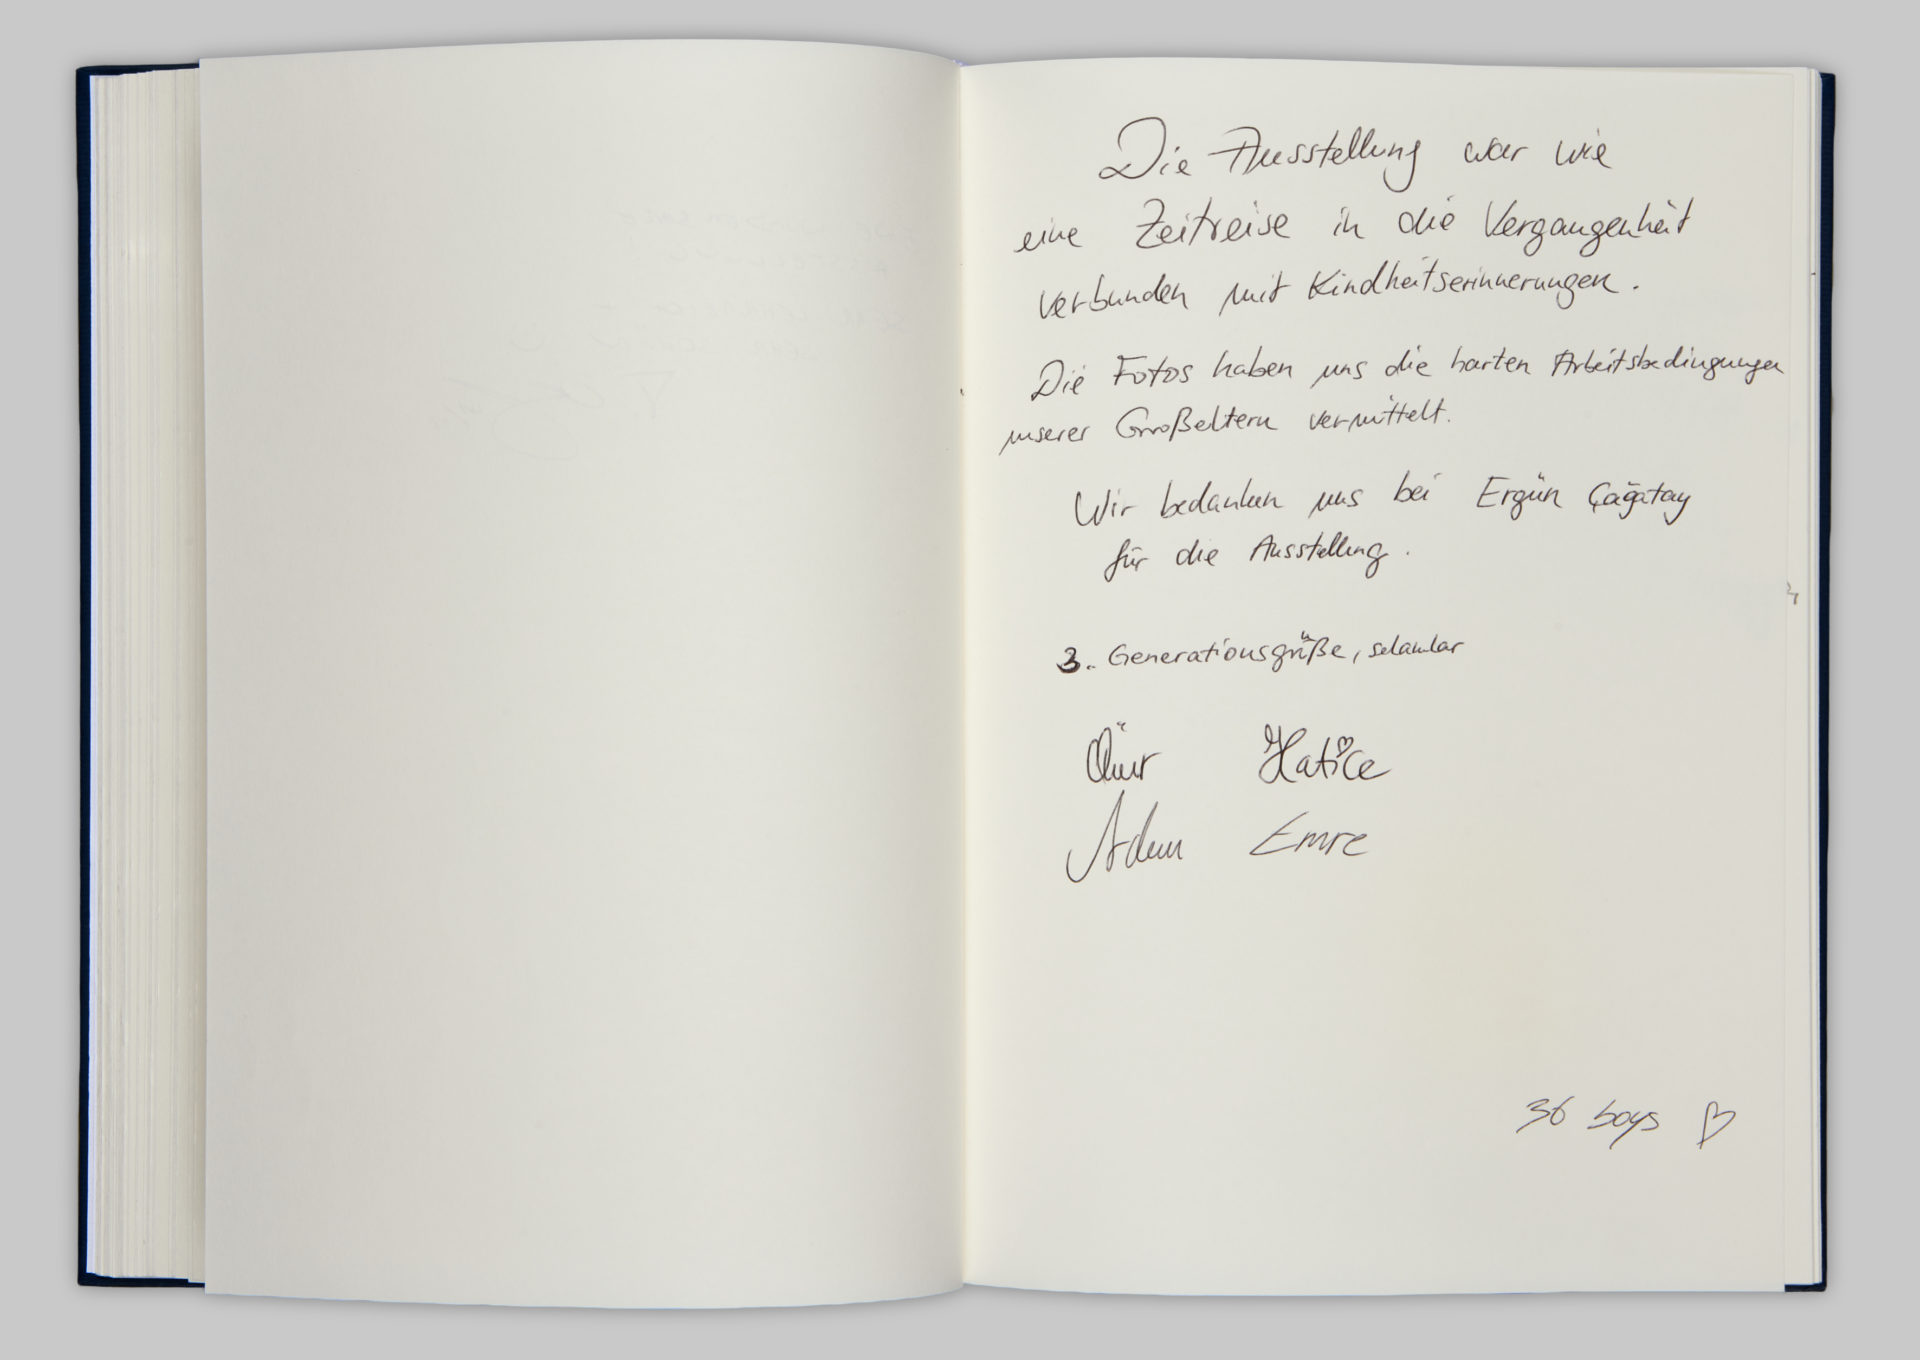 Die Ausstellung war wie
eine Zeitreise in die Vergangenheit
verbunden mit Kindheitserinnerungen.
Die Fotos haben uns die harten Arbeitsbedingungen
unserer Großeltern vermittelt.
Wir bedanken uns bei Ergün Çağatay
für die Ausstellung.
3. Generationsgrüße, selamlar
Hatice
Adem Emre
36 boys